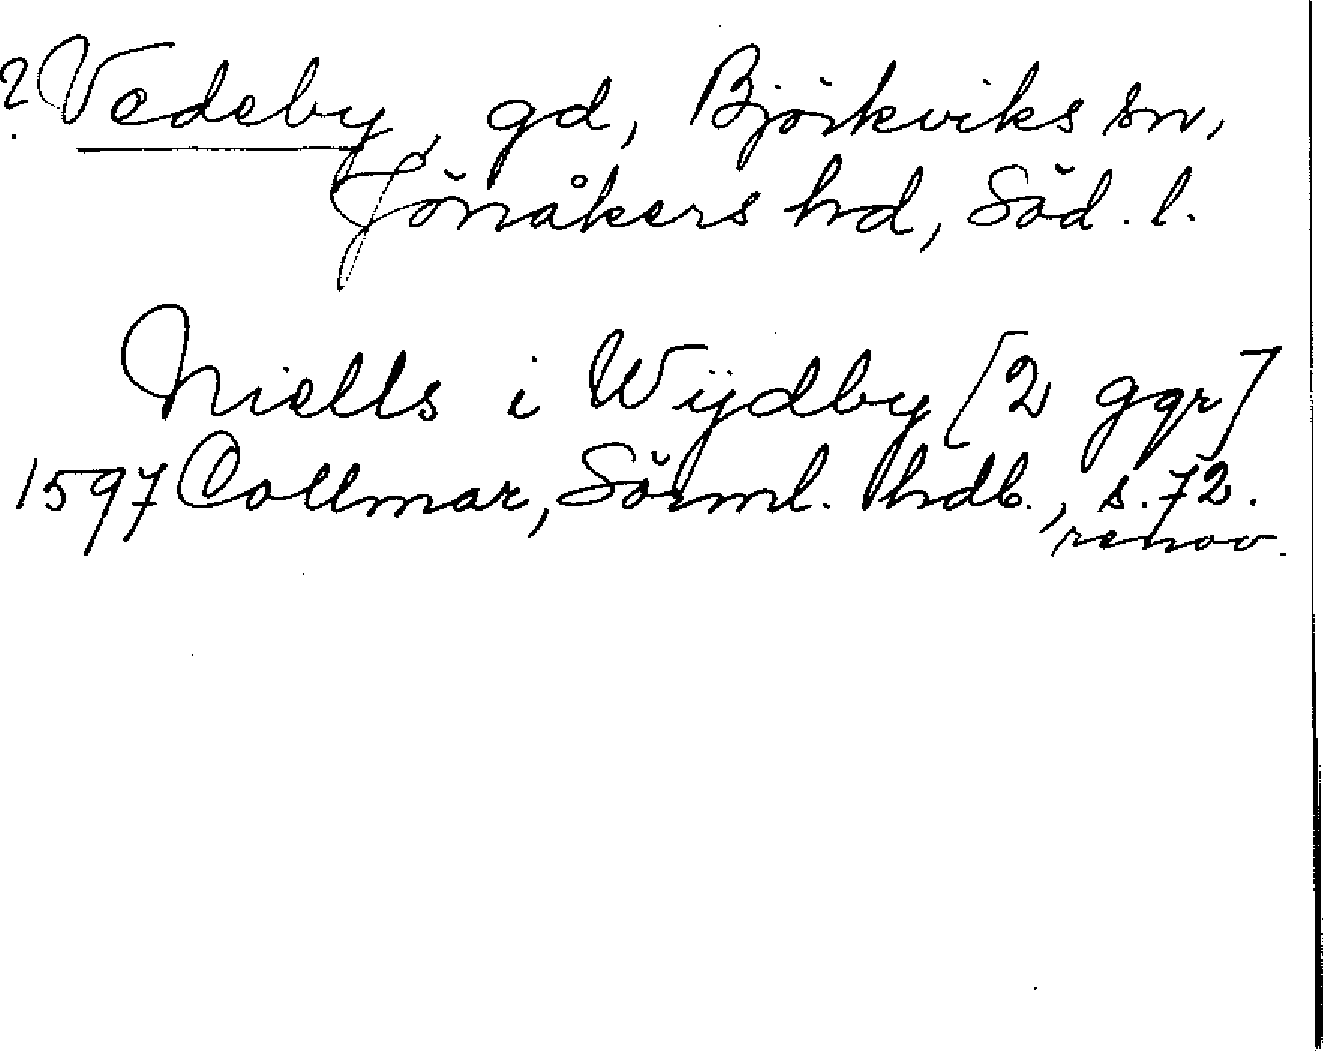 ? Vedeby, gd, Björkviks sn,
Jönåkers hd, Söd. l.
Niells i Wijdby [2 ggr]
1597 Collmar, Sörml. hdl., s. 72.
renov.